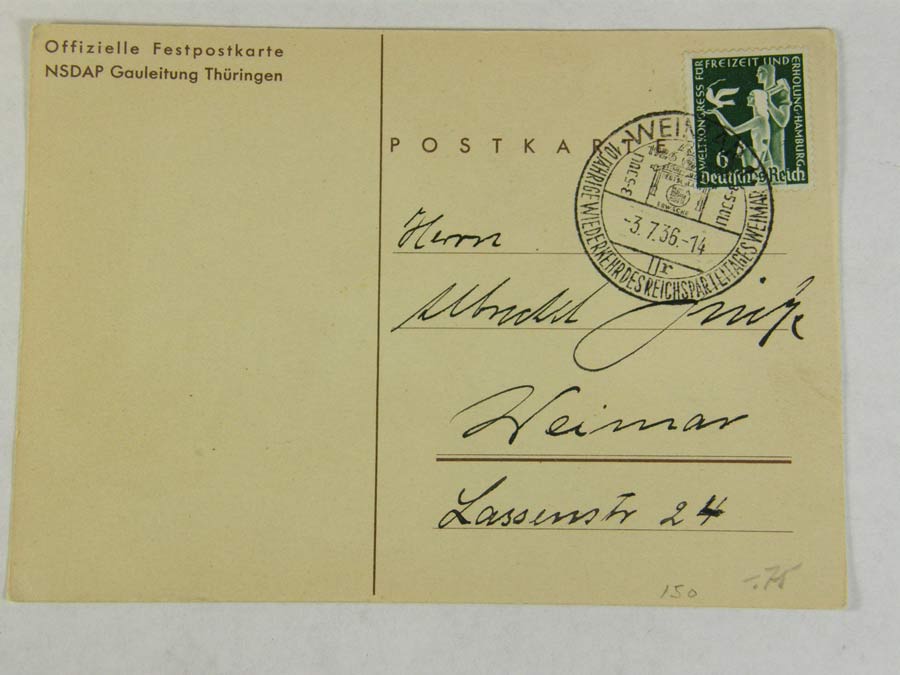 Offizielle Festpostkarte
NSDAP Gauleitung Thüringen
WELTKONGRESS FÜR FREIZEIT UND ERHOLUNG·HAMBURG
6
Deutsches Reich
POSTKARTE
WEIMAR
3-5 JULI
3-5 JULI
-3.7.36.-14
10 JÄHRIGE WIEDERKEHR DES REICHSPARTEITAGES WEIMAR
Herrn
Albrecht
Weimar
Lassenstr 24
150
-.75